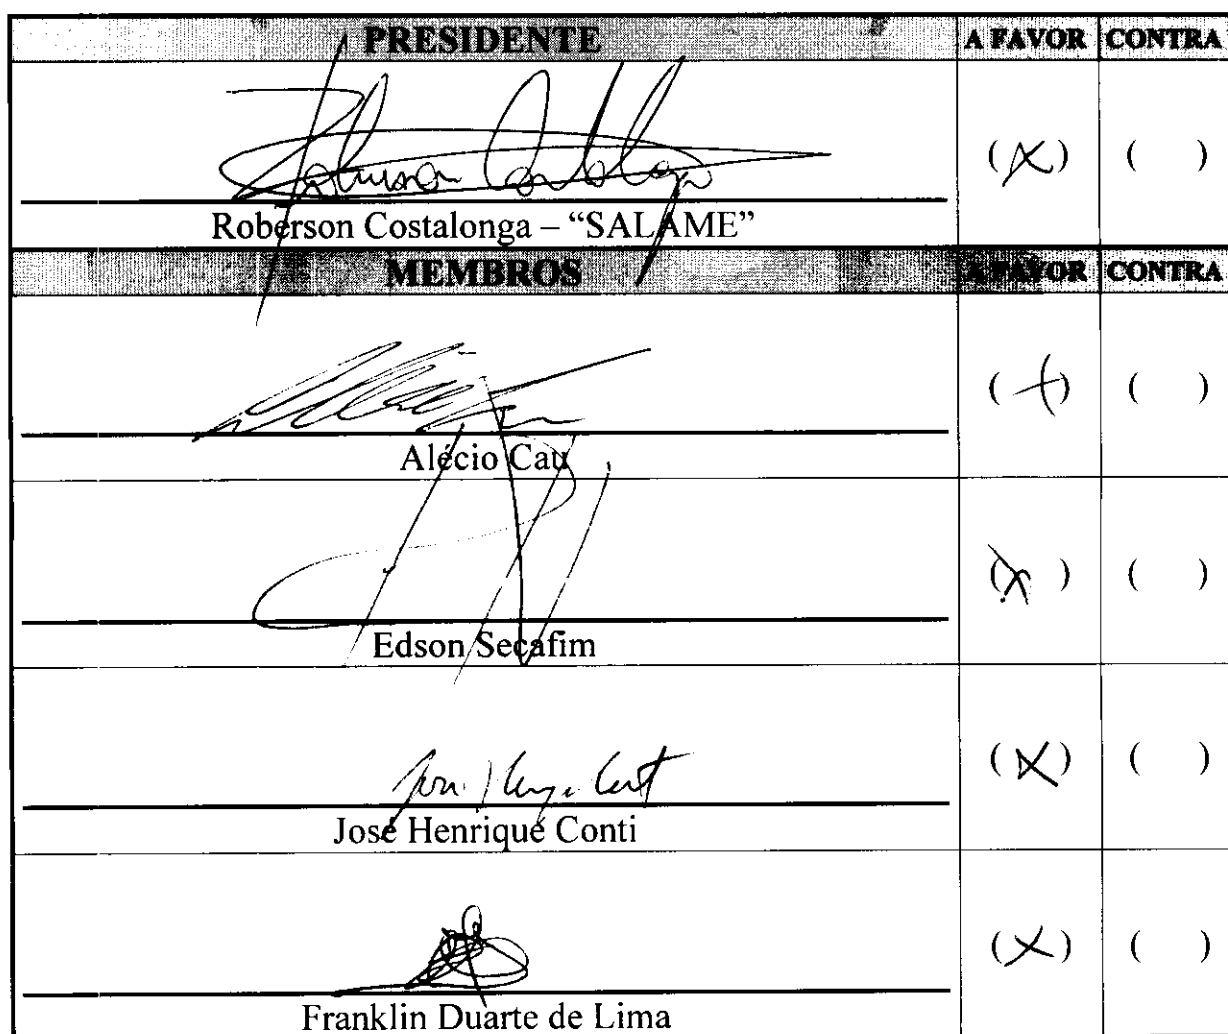 PRESIDENTE A FAVOR CONTRA
(X) ( )
Roberson Costalonga – “SALAME”
MEMBROS A FAVOR CONTRA
(X) ( )
Alécio Cau
(X) ( )
Edson Secafim
(X) ( )
José Henrique Conti
(X) ( )
Franklin Duarte de Lima